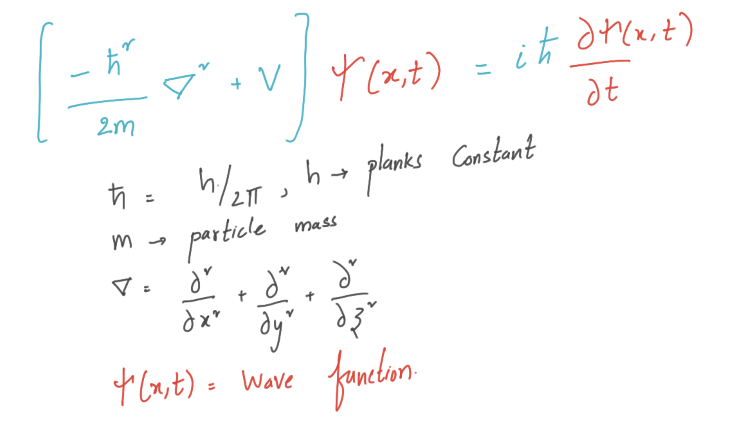 [-ħ²/2m ∇² + V] Ψ(x,t) = iħ ∂Ψ(x,t)/∂t
ħ = h/2π , h → planks Constant
m → particle mass
∇ = ∂²/∂x² + ∂²/∂y² + ∂²/∂z²
Ψ(x,t) = Wave function.